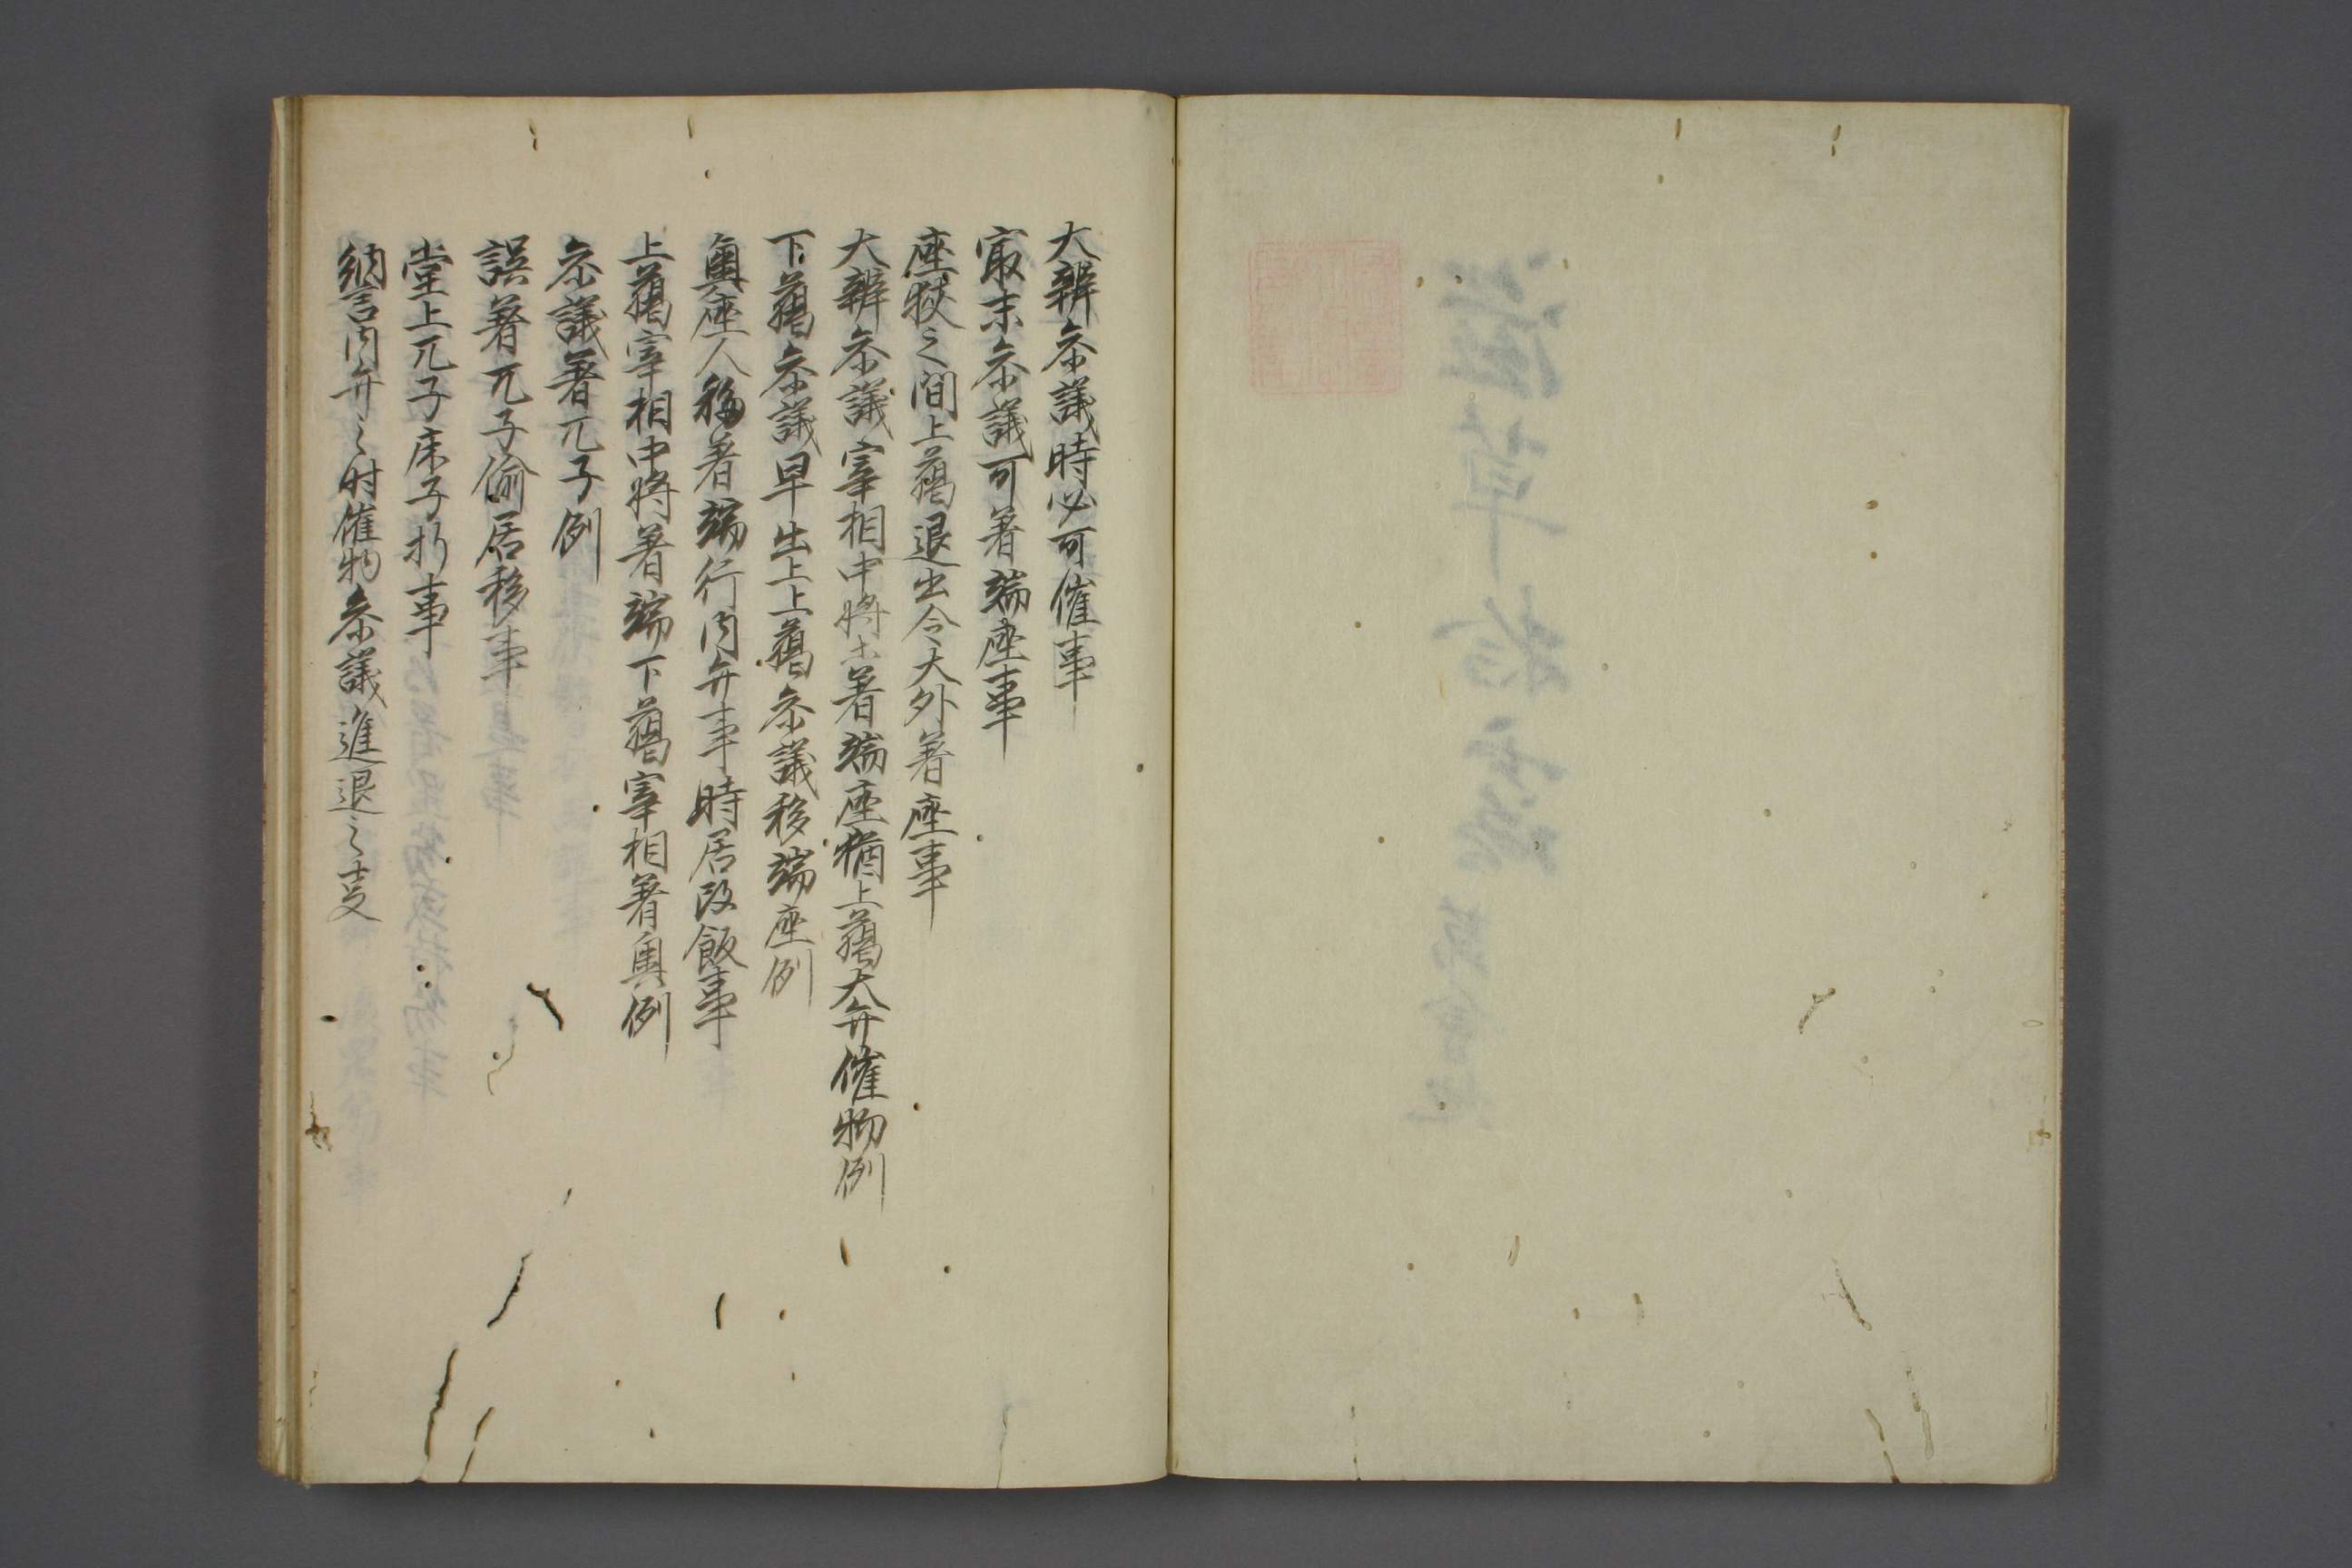 大辨参議時必可催事
冣末参議可著端座事
座狭之間上﨟退出令大外著座事
大辨参議宰相中将著端座猶上﨟大弁催物例
下﨟参議早出上上﨟参議移端座例
奥座人移著端行内弁事時居改飯事
上﨟宰相中将著端下﨟宰相著奥例
参議著兀子例
誤著兀子偷居移事
堂上兀子床子打事
納言内弁之时催物参議進退之事